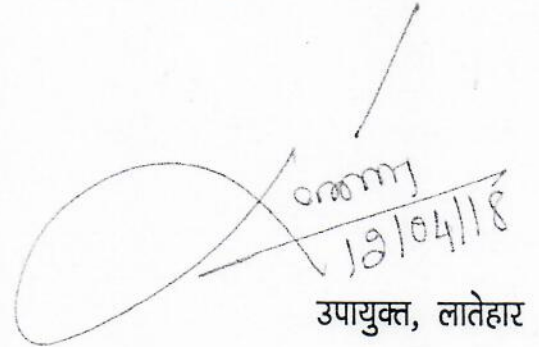 12/04/18
उपायुक्त, लातेहार